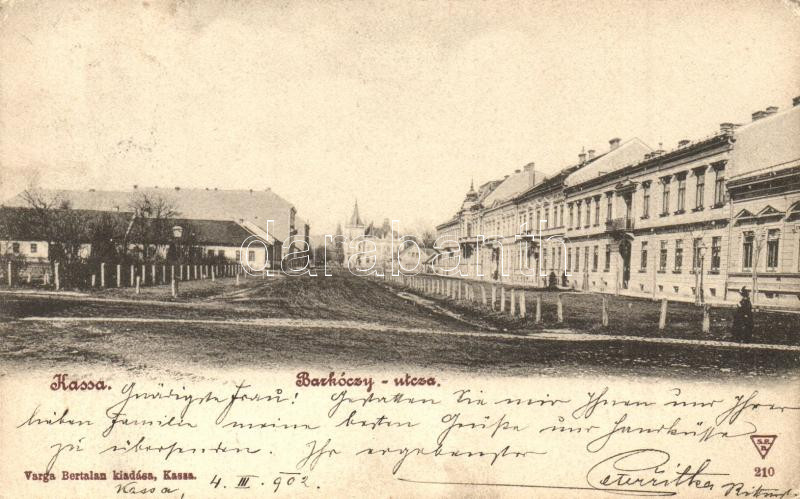 darabanth.com
Kassa. Barkóczy - utcza.
Gnädigste Frau! Gestatten Sie mir Ihnen und Ihrer
lieben Familie meine besten Grüße und Handküsse
zu übersenden. Ihr ergebenster
S.R.
210
Varga Bertalan kiadása, Kassa.
Kassa, 4. III. 902.